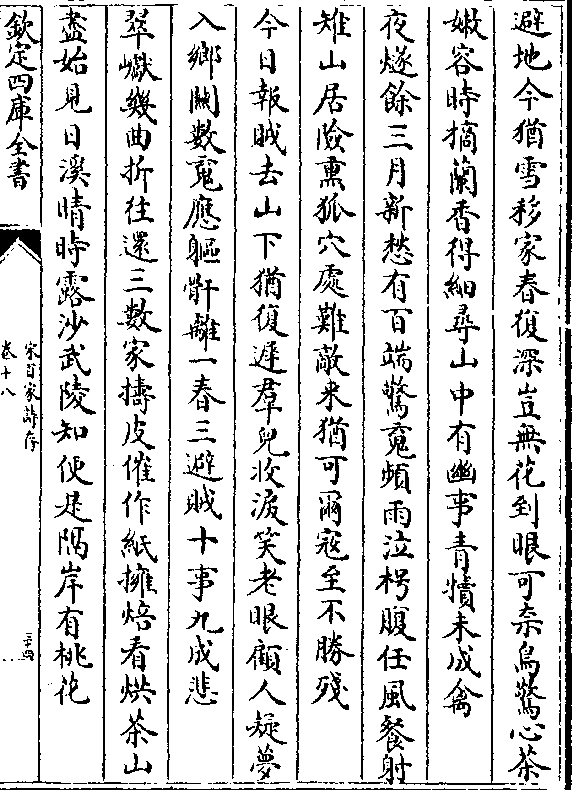 避地今猶雪移家春復深豈無花到眼可柰鳥驚心茶
嫩容時摘蘭香得細尋山中有幽事青犢未成禽
夜燧餘三月新愁有百端驚寃頻雨泣枵腹任風餐射
雉山居險熏狐穴處難敵來猶可爾寇至不勝殘
今日報賊去山下猶復遲羣兒收淚笑老眼顧人疑夢
入鄉關數寃應軀骭離一春三避賊十事九成悲
翠巘幾曲折往還三數家擣皮催作紙擁焙看烘茶山
盡始見日溪晴時露沙武陵知便是隔岸有桃花
欽定四庫全書
宋百家詩存
卷十八
二十四